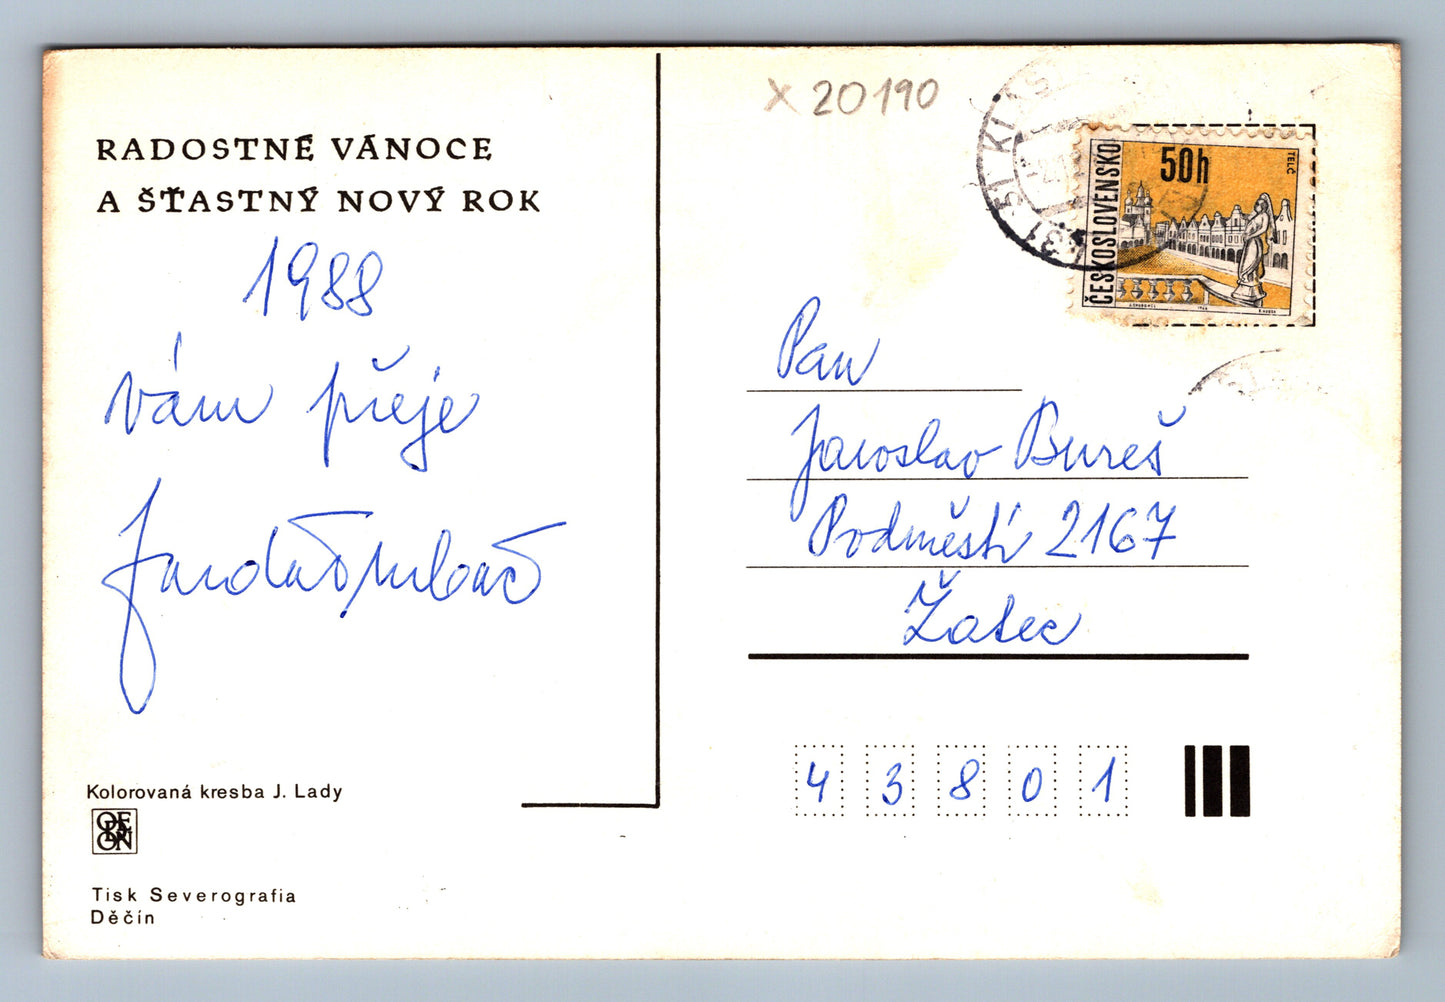 RADOSTNÉ VÁNOCE
A ŠŤASTNÝ NOVÝ ROK
1988
vám přeje
Kolorovaná kresba J. Lady
ORBIS
Tisk Severografia
Děčín
x 20190
431 51 KLÁŠ
ČESKOSLOVENSKO
50h
TELČ
Pan
Jaroslav Bureš
Podměstí 2167
Žatec
43801